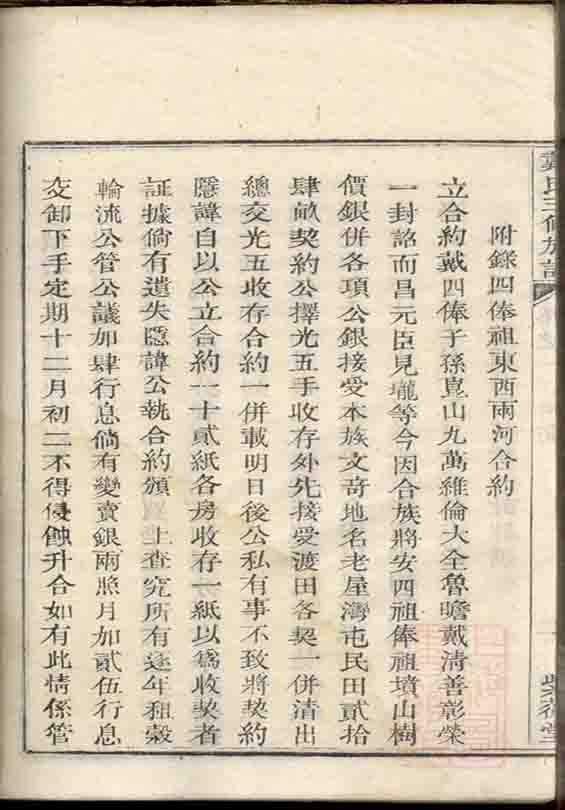 戴氏三修族譜
附錄四俸祖東西兩河合約
立合約戴四俸子孫崑山九萬維倫大全魯瞻戴清善彰榮
一封詔而昌元臣見瓏等今因合族將安四祖俸祖墳山樹
價銀併各項公銀接受本族文奇地名老屋灣屯民田貳拾
肆畝契約公擇光五手收存外先接受渡田各契一併清出
總交光五收存合約一併載明日後公私有事不致將契約
隱諱自以公立合約一十貳紙各房收存一紙以爲收契者
証據倘有遺失隱諱公執合約頒 上查究所有逐年租穀
輪流公管公議加肆行息倘有變賣銀兩照月加貳伍行息
交卸下手定期十二月初二不得侵蝕升合如有此情係管